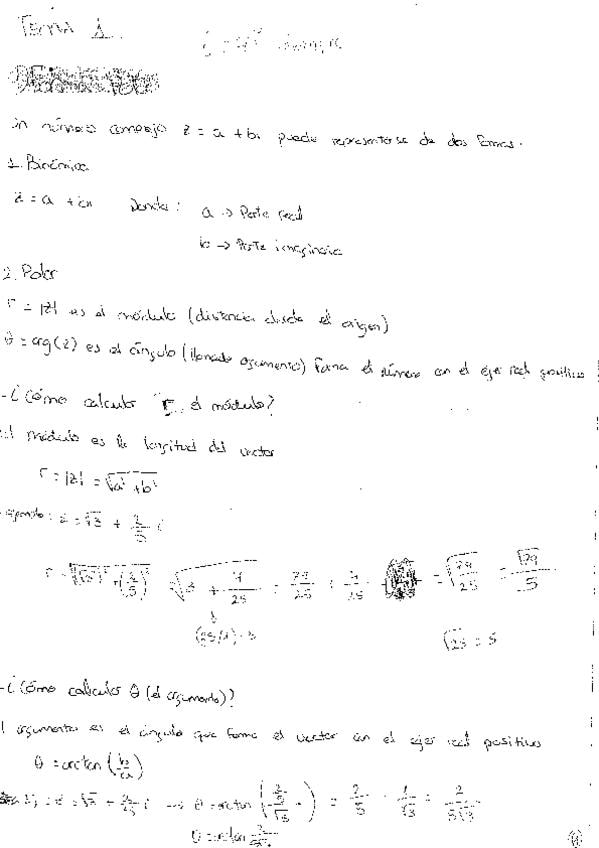 Tema 1.
Un número complejo z = a + bi puede representarse de dos formas.
1. Binómica
z = a + bi Donde: a → Parte real
b → Parte imaginaria
2. Polar
r = |z| es el módulo (distancia desde el origen)
θ = arg(z) es el ángulo (llamado argumento) forma el número con el eje real positivo
- ¿Cómo calculo "r" el módulo?
El módulo es la longitud del vector
r = |z| = √a² + b²
Ejemplo: z = √3 + 2/5 i
r = √(√3)² + (2/5)² √3 + 4/25 = 79/25 = √79/25 = √79/5
√25 = 5
- ¿Cómo calculo θ (el argumento)?
El argumento es el ángulo que forma el vector con el eje real positivo
θ = arctan (b/a)
z = √3 + 2/5 i → θ = arctan (2/5 / √3) = 2/5 · 1/√3 = 2/5√3
θ = arctan 2/5√3